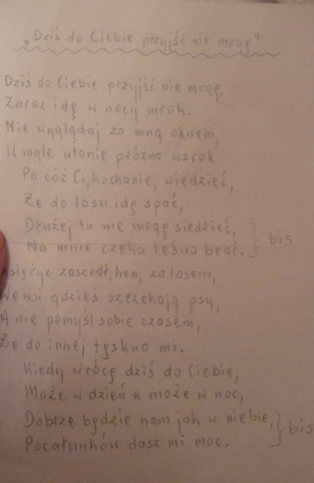 „Dziś do Ciebie przyjść nie mogę"
Dziś do Ciebie przyjść nie mogę,
Zaraz idę w nocy mrok.
Nie wyglądaj za mną oknem,
W mgle utonie próżno wzrok.
Po cóż Ci, kochanie, wiedzieć,
Że do lasu idę spać,
Dłużej tu nie mogę siedzieć, } bis
Na mnie czeka leśna brać.
Księżyc zaszedł, hen, za lasem,
We wsi gdzieś szczekają psy,
A nie pomyśl sobie czasem,
Że do innej tęskno mi.
Kiedy wrócę dziś do Ciebie,
Może w dzień a może w noc,
Dobrze będzie nam jak w niebie, } bis
Pocałunków dasz mi moc.